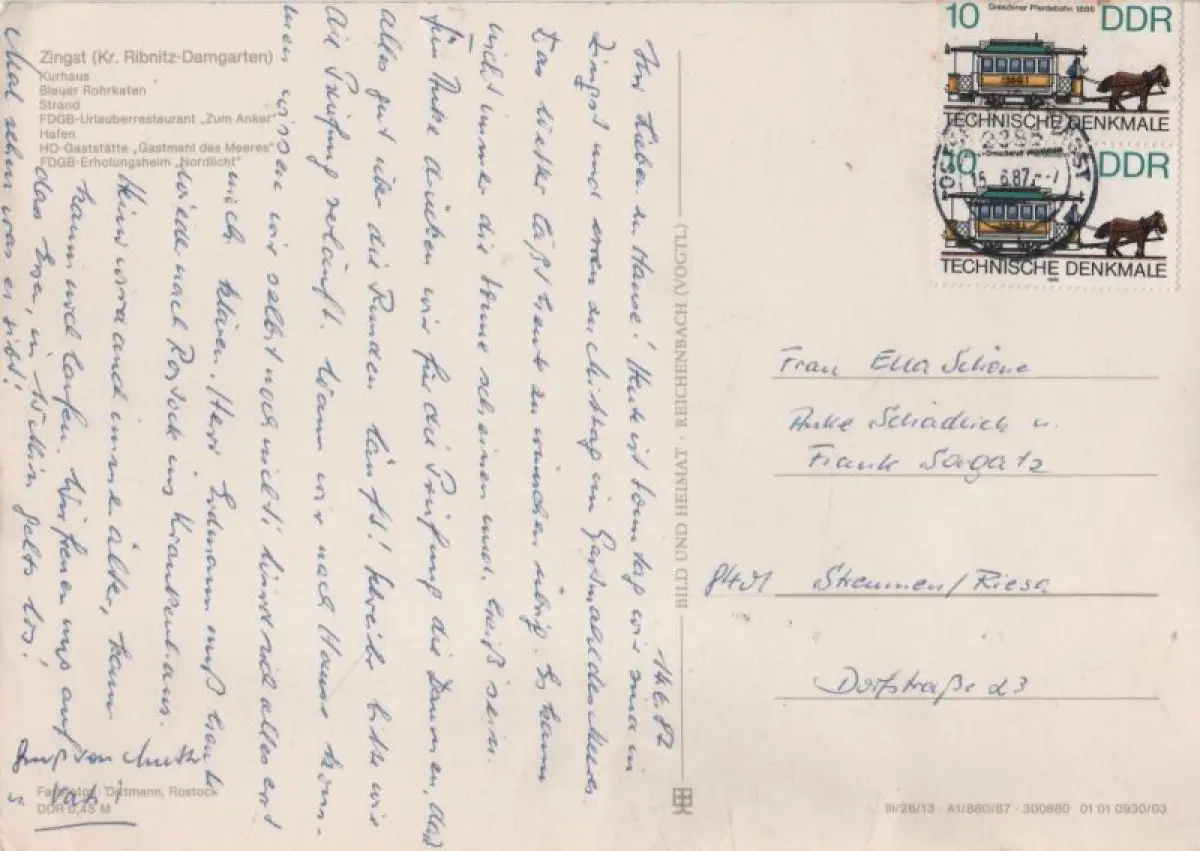 Zingst (Kr. Ribnitz-Damgarten)
Kurhaus
Blauer Rohrkaten
Strand
FDGB-Urlauberrestaurant „Zum Anker“
Hafen
HO-Gaststätte „Gastmahl des Meeres“
FDGB-Erholungsheim „Nordlicht“
14.6.87
Ihr Lieben zu Hause! Heute ist Sonntag wir sind in
Zingst und essen zu Mittag im Gastmahl des Meeres.
Das Wetter läßt heute zu wünschen übrig. Es kann
nicht immer die Sonne scheinen und heiß sein.
Für Anke drücken wir für die Prüfung die Daumen, daß
alles gut über die Runden läuft! Schreibt bitte wie
die Prüfung gelaufen. Wann wir nach Hause kom-
men wissen wir selbst noch nicht! wird sich alles erst
noch klären. Herr Erdmann muß
nach Rostock ins Krankenhaus.
wird auch immer älter, kaum
kann noch laufen. Wir freuen uns auf
das in gehts los!
Mal sehn was es gibt!
Gruß von Mutti
Vati
Farbfotos: Dittmann, Rostock
DDR 0,45 M
BILD UND HEIMAT · REICHENBACH (VOGTL)
10 Dresdner Pferdebahn 1886 DDR
TECHNISCHE DENKMALE
10 DDR
TECHNISCHE DENKMALE
15.6.87
Frau Ella Schöne
Anke Schädlich u.
Frank Sagatz
8401 Straumen/Riesa
Dorfstraße 23
III/26/13 · A1/880/87 · 300880 01 01 0930/03